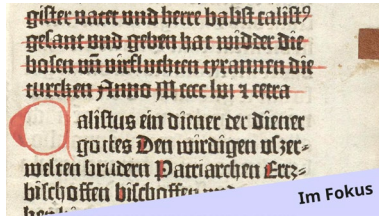 gister vater vnd herre babst calistꝯ
gesant vnd geben hat widder die
bosen vñ virfluchten tyrannen die
turcken Anno M cccc lvi ⁊ cetra
Calistus ein diener der diener
gottes Den wirdigen vßerz⸗
welten brudern Patriarchen Ertz⸗
bischoffen bischoffen
Im Fokus